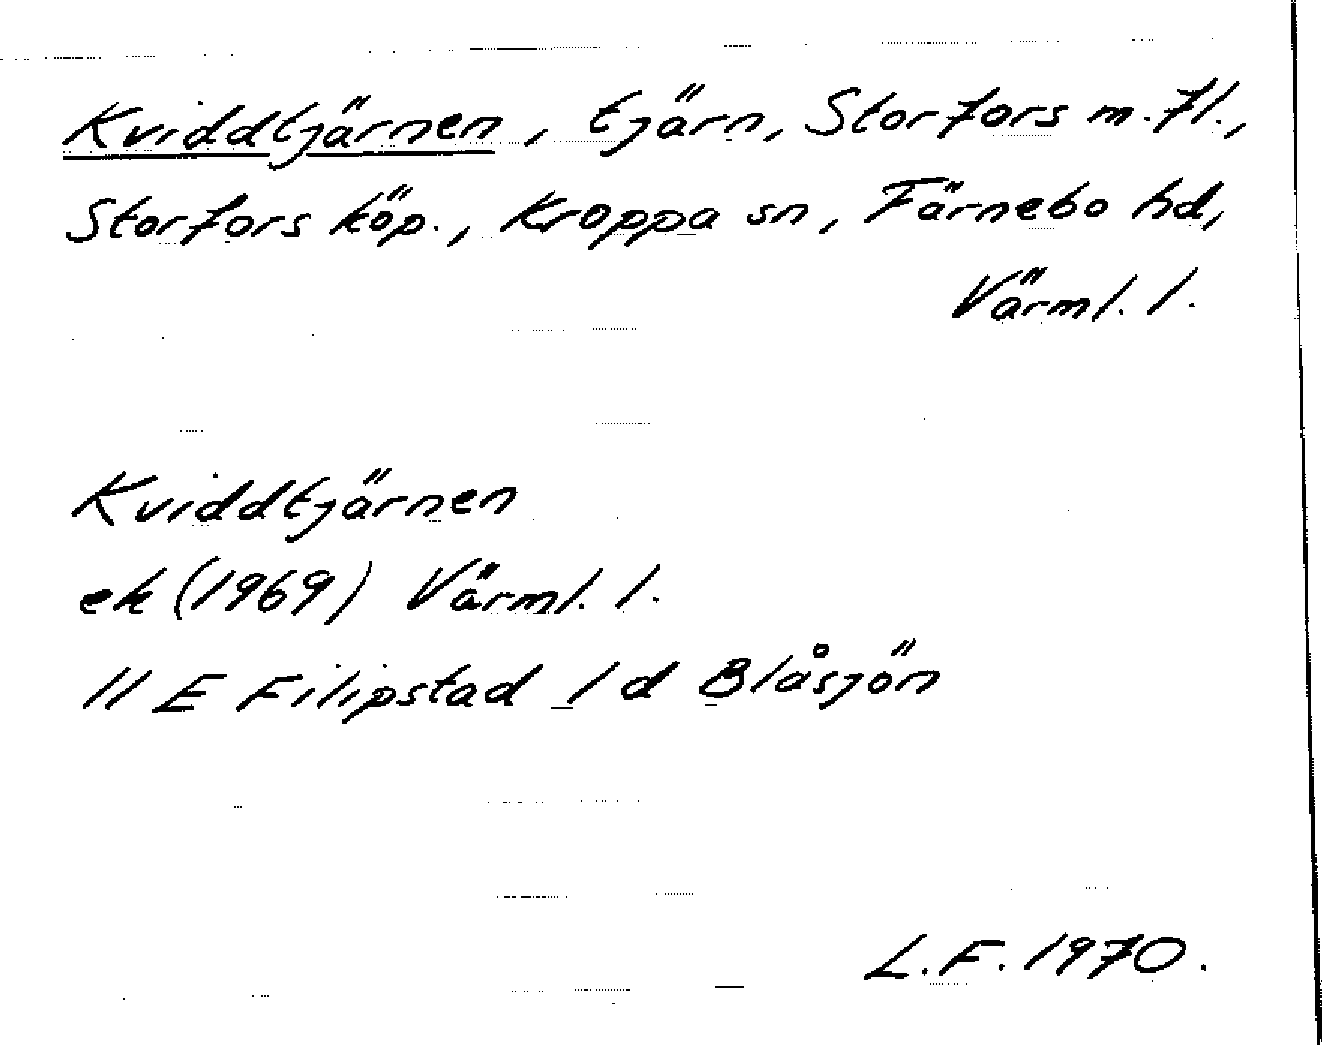 Kviddtjärnen, tjärn, Storfors m.fl.,
Storfors köp., Kroppa sn, Färnebo hd,
Värml. l.
Kviddtjärnen
ek (1969) Värml. l.
11 E Filipstad 1 d Blåsjön
L.F. 1970.